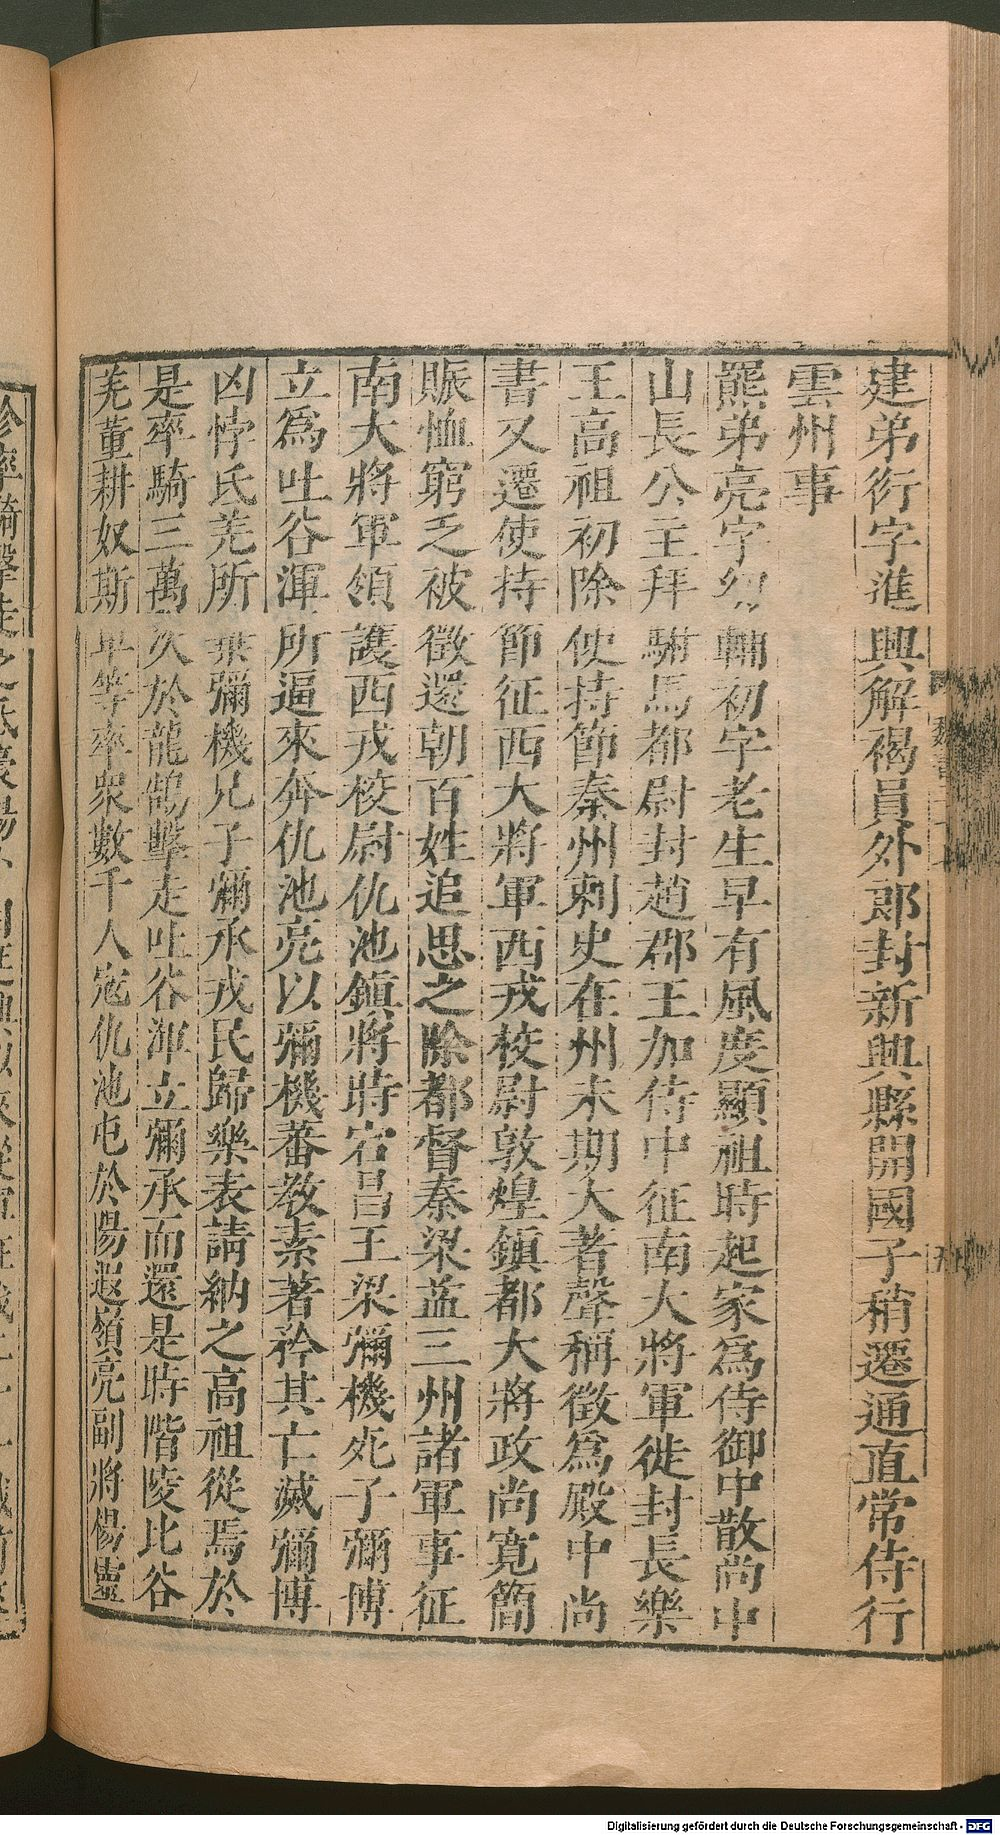 建弟衍字進興解褐員外郎封新興縣開國子稍遷通直常侍行
雲州事
羆弟亮字幼輔初字老生早有風度顯祖時起家爲侍御中散尚中
山長公主拜駙馬都尉封趙郡王加侍中征南大將軍徙封長樂
王高祖初除使持節秦州刺史在州未期大著聲稱徵爲殿中尚
書又遷使持節征西大將軍西戎校尉敦煌鎮都大將政尚寬簡
賑恤窮乏被徵還朝百姓追思之除都督秦梁益三州諸軍事征
南大將軍領護西戎校尉仇池鎮將時宕昌王梁彌機死子彌博
立爲吐谷渾所逼來奔仇池亮以彌機蕃教素著矜其亡滅彌博
凶悖氐羌所棄彌機兄子彌承戎民歸樂表請納之高祖從焉於
是率騎三萬次於龍鵠擊走吐谷渾立彌承而還是時階陵比谷
羌董耕奴斯卑等率眾數千人寇仇池屯於陽遐嶺亮副將楊靈
Digitalisierung gefördert durch die Deutsche Forschungsgemeinschaft - DFG